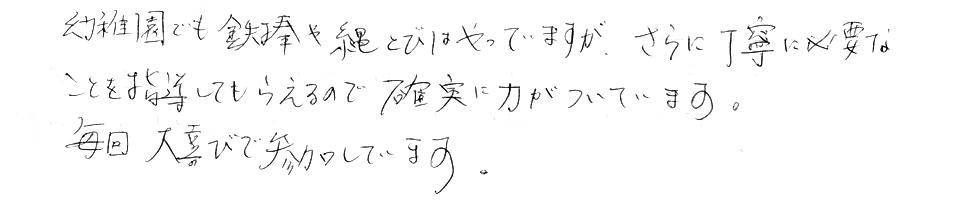 幼稚園でも鉄棒や縄とびはやってますが、さらに丁寧に必要な
ことを指導してもらえるので確実に力がついています。
毎回大喜びで参加しています。